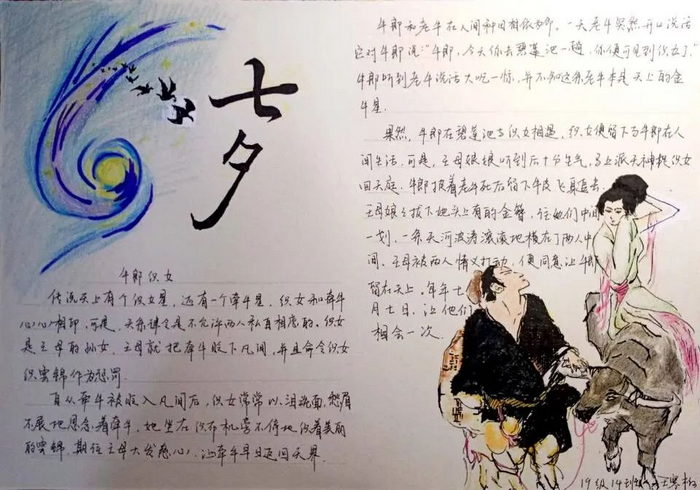 七夕
牛郎织女
传说天上有个织女星，还有一个牵牛星，织女和牵牛
心心相印，可是，天条律令是不允许两人私自相恋的，织女
是王母的孙女，王母就把牵牛贬下凡间，并且命令织女
织云锦作为惩罚
自从牵牛被贬入凡间后，织女常常以泪洗面，愁眉
不展地思念着牵牛，她坐在织布机旁不停地织着美丽
的云锦，期待王母大发慈心，让牵牛早日返回天界
牛郎和老牛在人间种田相依为命，一天老牛突然开口说话
它对牛郎说"牛郎，今天你去碧莲池一趟，你便可见到织女了，"
牛郎听到老牛说话大吃一惊，并不知这条老牛本是天上的金
牛星.
果然，牛郎在碧莲池与织女相遇，织女便留下与牛郎在人
间生活，可是，王母娘娘听到后十分生气，马上派天神捉织女
回天庭，牛郎披着老牛死后留下牛皮飞身追去，
王母娘娘拔下她头上有的金簪，往她们中间
一划，一条天河波涛滚滚地横在了两人中
间，王母被两人情义打动，便同意让牛郎
留在天上，每年七
月七日，让他们
相会一次.
19级14班